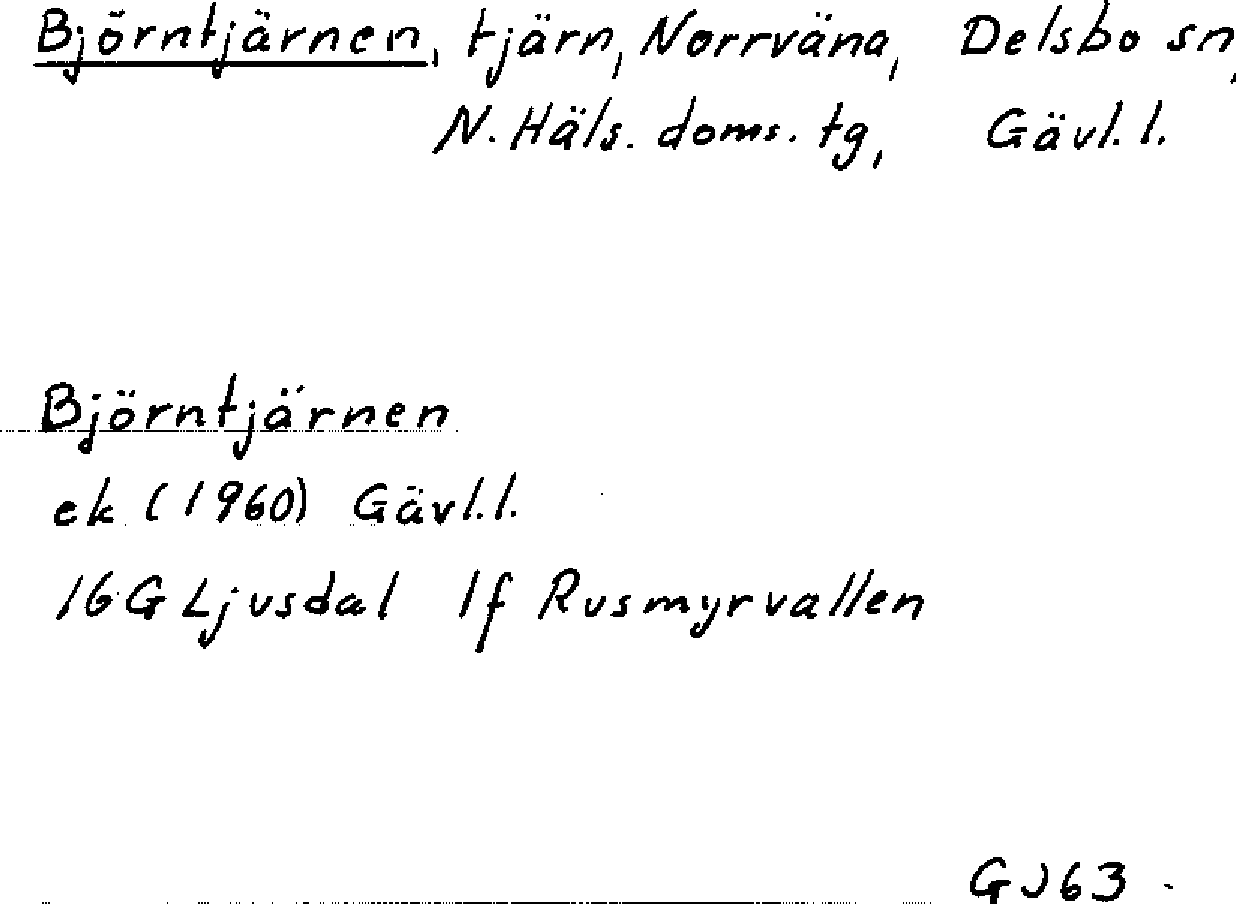 Björntjärnen, tjärn, Norrväna, Delsbo sn,
N. Häls. doms. tg, Gävl. l.
Björntjärnen
ek (1960) Gävl. l.
16G Ljusdal 1f Rusmyrvallen
GJ63